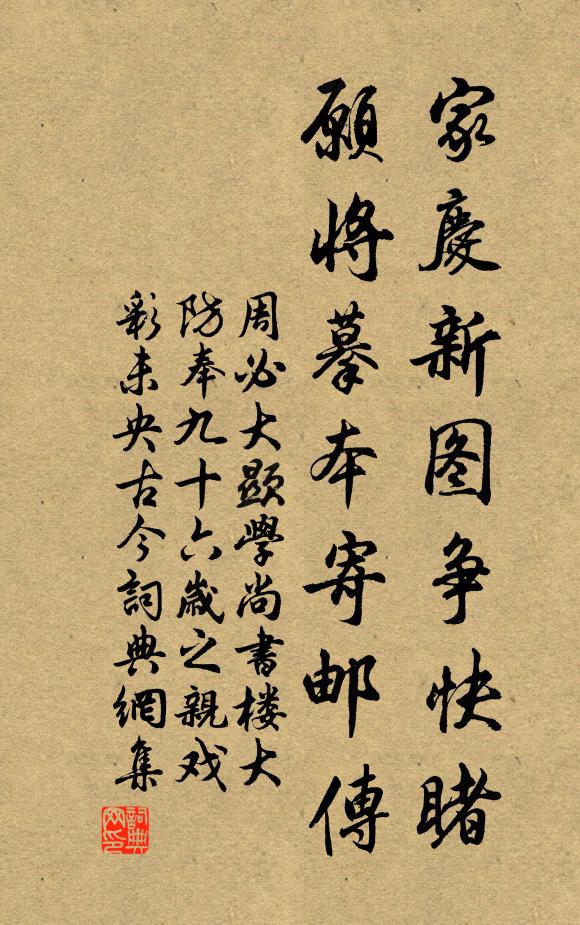 家慶新图争快睹
願將摹本寄邮傳
周必大顯學尚書楼大
防奉九十六歲之親戏
彩未央古今詞典網集
詞典网印